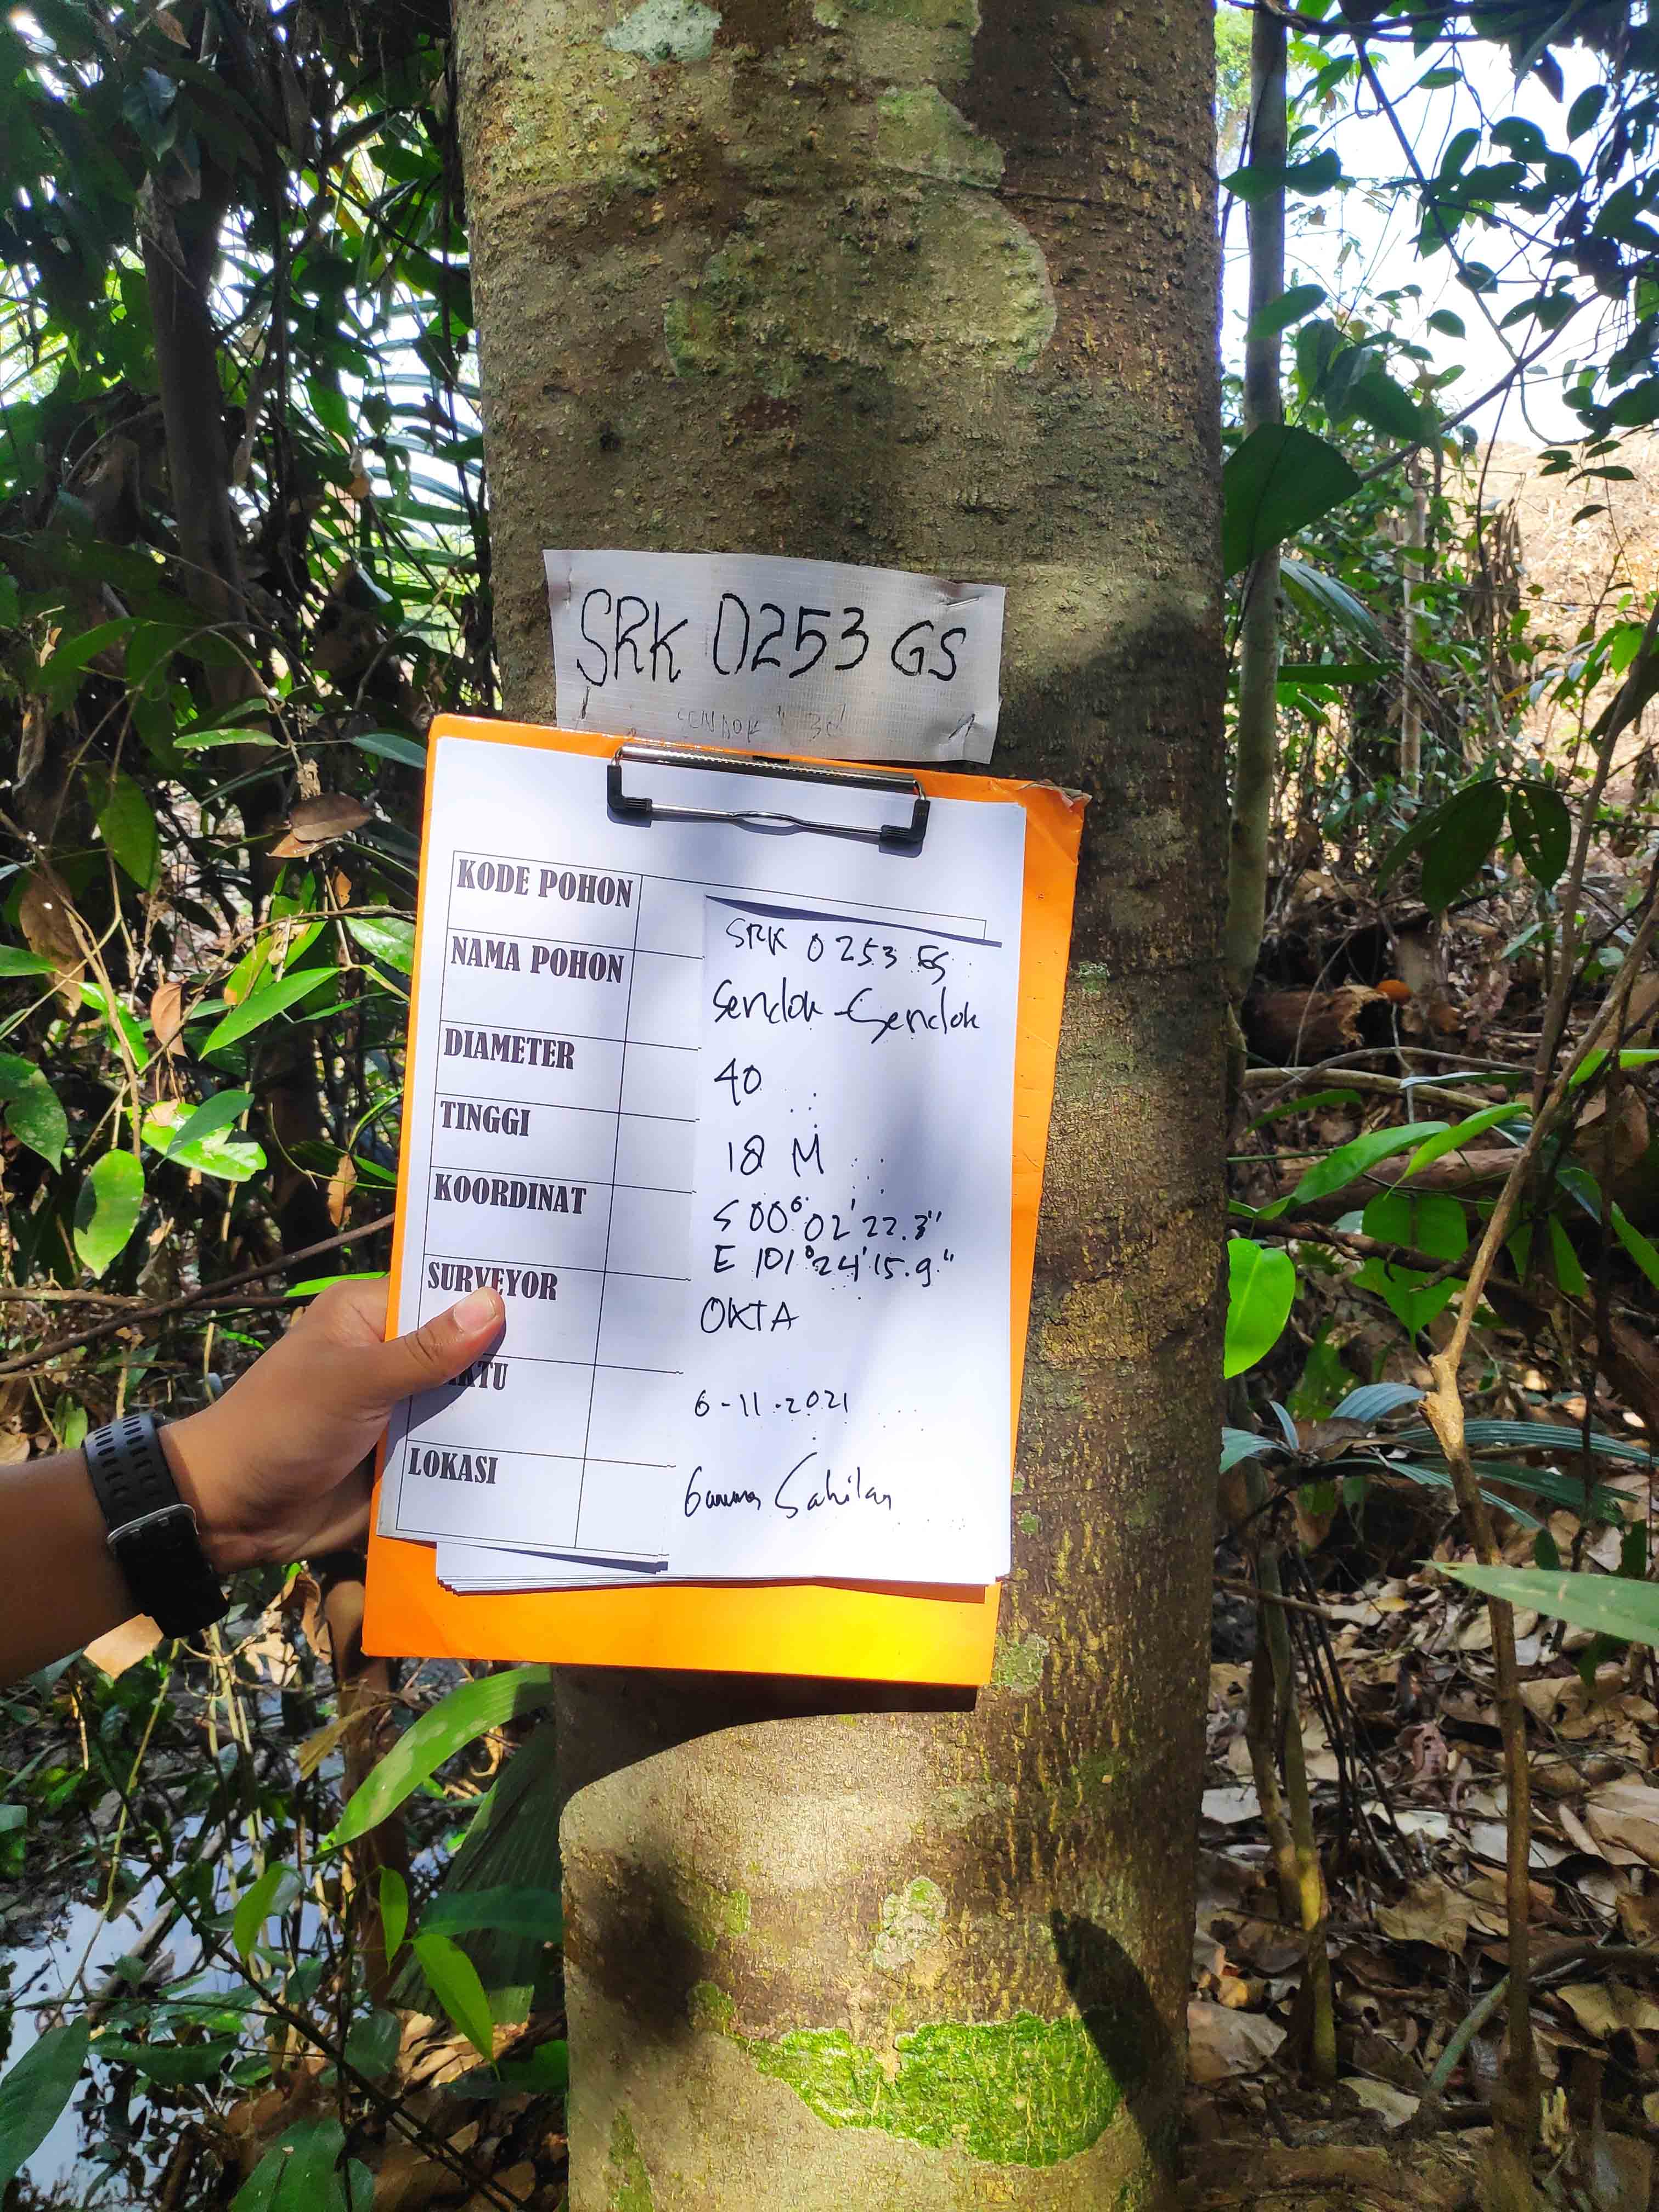 SRK 0253 GS
SENDOK
KODE POHON SRK 0253 GS
NAMA POHON Sendok-Sendok
DIAMETER 40
TINGGI 18 M
KOORDINAT S 00° 02' 22.3"
E 101° 24' 15.9"
SURVEYOR OKTA
6-11-2021
LOKASI Gunung Sahilan